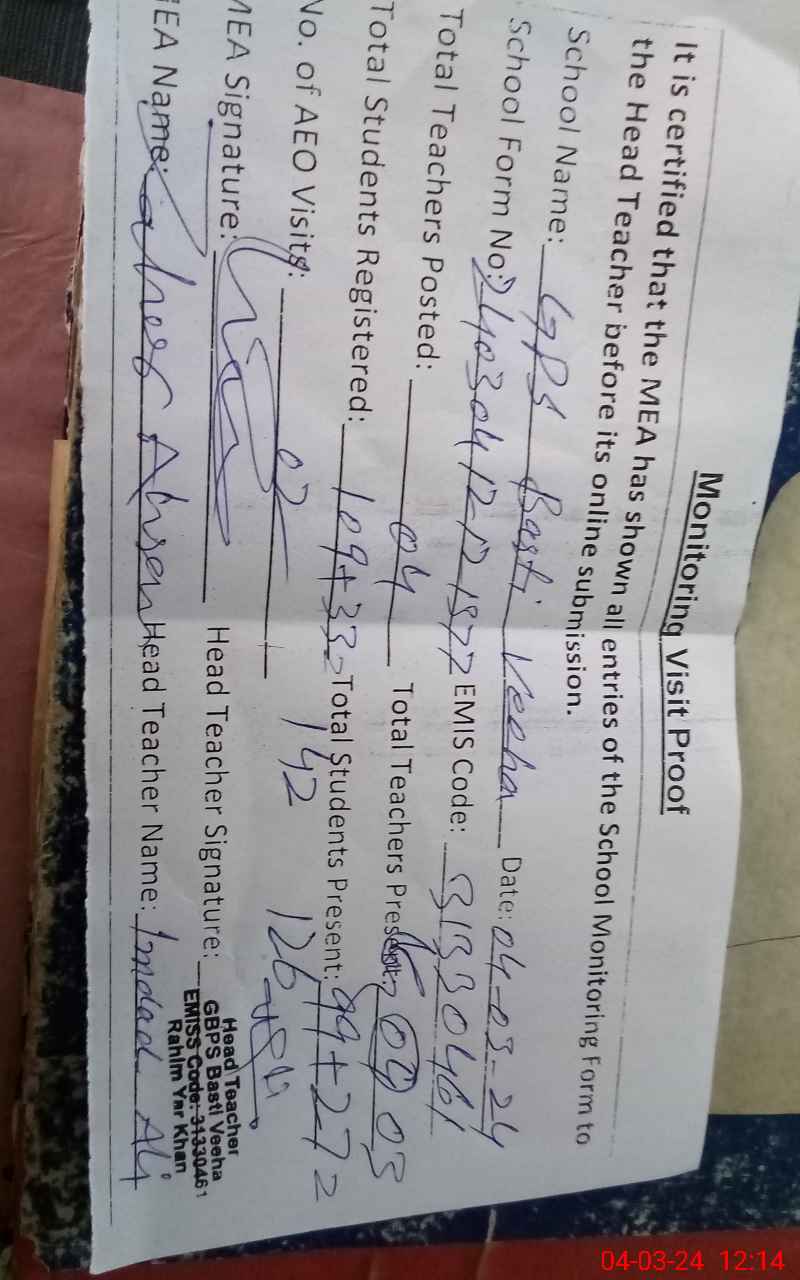 Monitoring Visit Proof
It is certified that the MEA has shown all entries of the School Monitoring Form to
the Head Teacher before its online submission.
School Name: GPS Basti Veeha Date: 04-03-24
School Form No: EMIS Code: 31330461
Total Teachers Posted: 04 Total Teachers Present: 04 03
Total Students Registered: 109+33= Total Students Present: 99+27=
142 126
No. of AEO Visits: 02
MEA Signature: Head Teacher Signature:
Head Teacher
GBPS Basti Veeha
EMISS Code: 31330461
Rahim Yar Khan
MEA Name: Ahsan Head Teacher Name: Imdad Ali
04-03-24 12:14